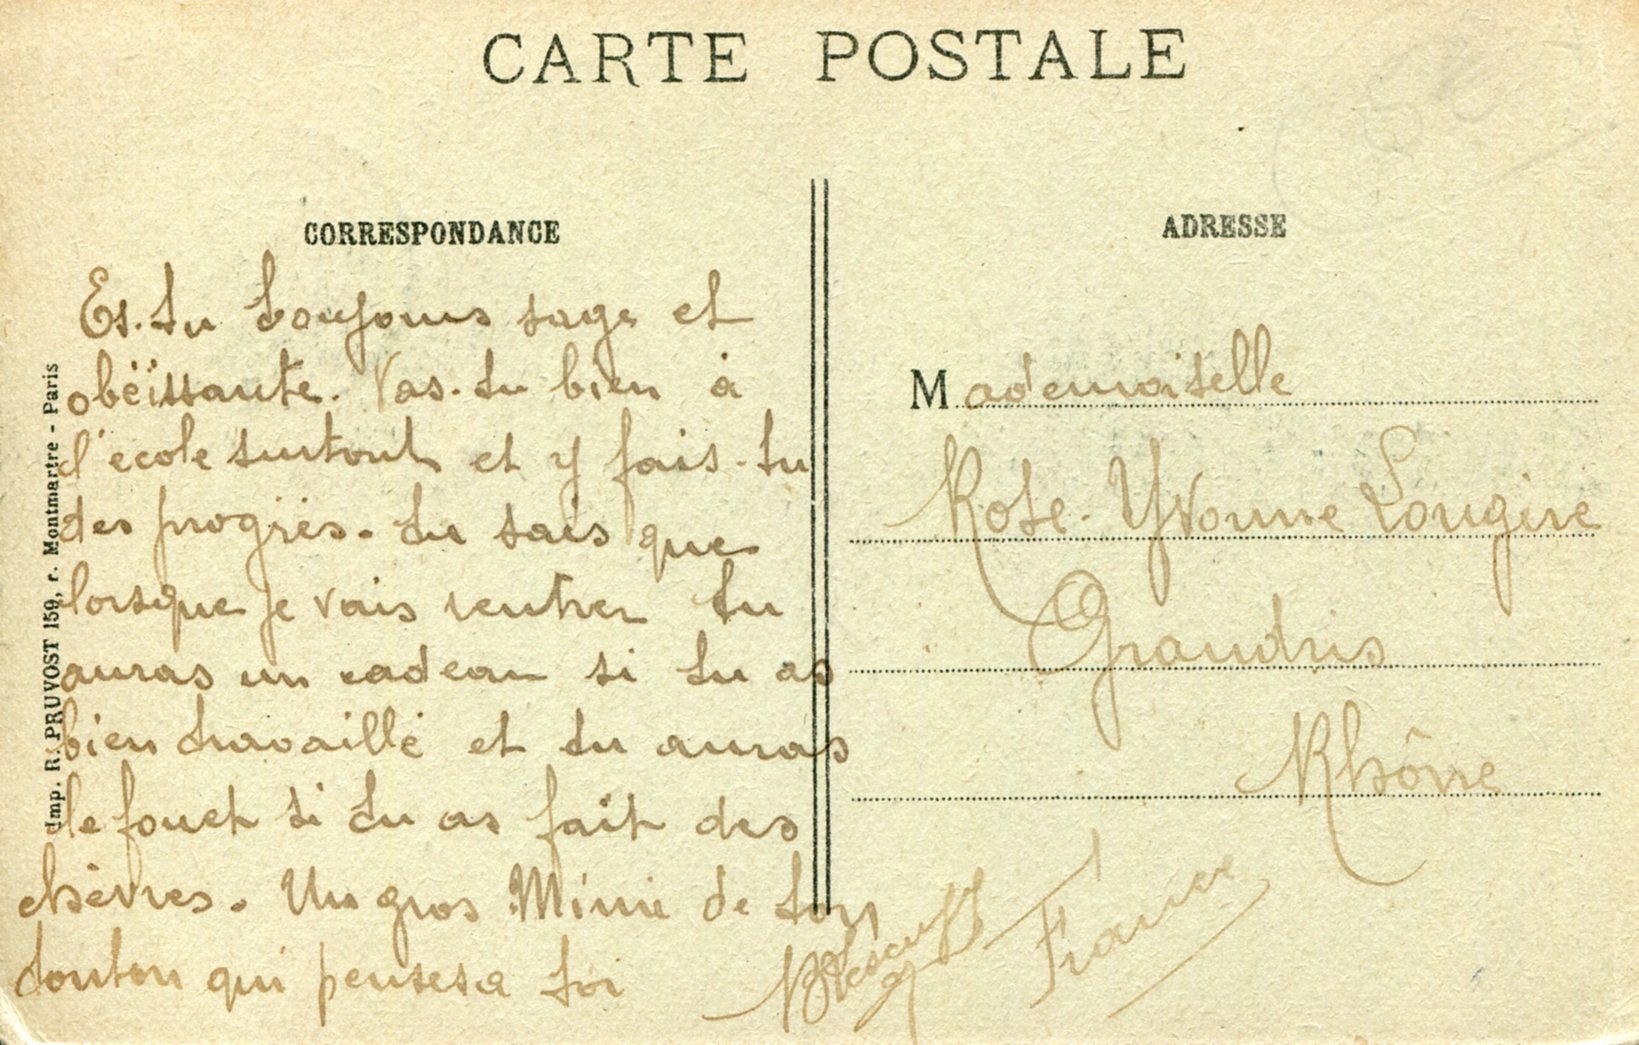 CARTE POSTALE
CORRESPONDANCE
Es-tu toujours sage et
obëissante. Vas-tu bien à
l'ecole surtout et y fais-tu
des progrès. tu sais que
lorsque je vais rentrer tu
auras un cadeau si tu as
bien travaillé et tu auras
le fouet si tu as fait des
chèvres. Un gros Mimi de ton
tonton qui pense a toi
ADRESSE
Mademoiselle
Rose-Yvonne Longère
Grandris
Rhône
France
Imp. R. PRUVOST 159, r. Montmartre - Paris